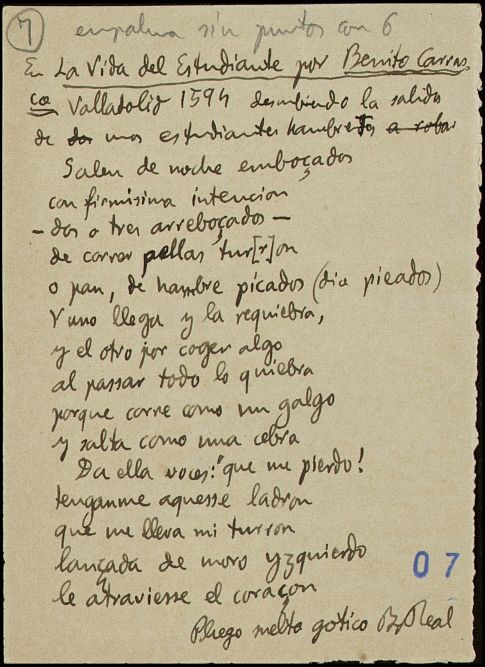 7 empalma sin puntos con 6
En La Vida del Estudiante por Benito Carras
co Valladolid 1594 describiendo la salida
de dos unos estudiantes hambrientos a robar
Salen de noche emboçados
con firmisima intencion
- dos o tres arreboçados -
de correr pellas, tur[r]on
o pan, de hambre picados (dia picados)
Y uno llega y la requiebra,
y el otro por coger algo
al passar todo lo quiebra
porque corre como un galgo
y salta como una cebra
Da ella voces: "que me pierdo!
tenganme aquesse ladron
que me lleva mi turron
lançada de moro yzquierdo
le atraviesse el coraçon
Pliego suelto gotico B. Real
07